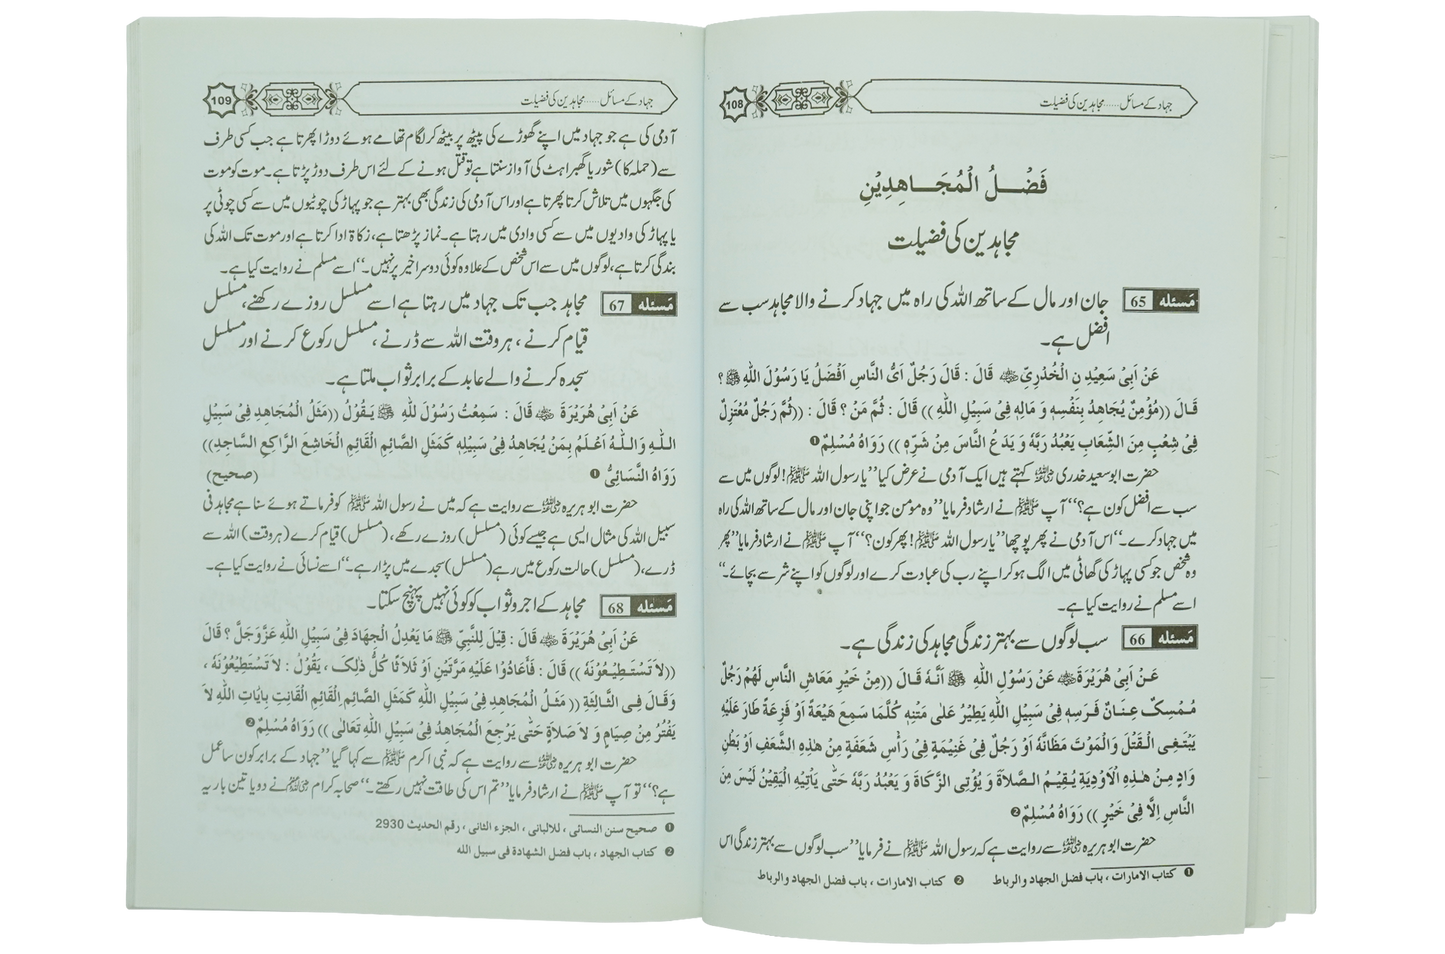 جہاد کے مسائل ...... مجاہدین کی فضیلت
108
فَضْلُ الْمُجَاهِدِيْنِ
مجاہدین کی فضیلت
مَسئله 65 جان اور مال کے ساتھ اللہ کی راہ میں جہاد کرنے والا مجاہد سب سے
افضل ہے۔
عَنْ اَبِیْ سَعِيْدِ نِ الْخُدْرِيِّ ؓ قَالَ : قَالَ رَجُلٌ اَیُّ النَّاسِ اَفْضَلُ يَا رَسُوْلَ اللهِ ﷺ ؟
قَالَ ((مُؤْمِنٌ يُجَاهِدُ بِنَفْسِهٖ وَ مَالِهٖ فِیْ سَبِيْلِ اللهِ )) قَالَ : ثُمَّ مَنْ ؟ قَالَ : ((ثُمَّ رَجُلٌ مُعْتَزِلٌ
فِیْ شِعْبٍ مِنَ الشِّعَابِ يَعْبُدُ رَبَّهٗ وَ يَدَعُ النَّاسَ مِنْ شَرِّهٖ )) رَوَاهُ مُسْلِمٌ ❶
حضرت ابوسعید خدری ؓ کہتے ہیں ایک آدمی نے عرض کیا ”یا رسول اللہ ﷺ! لوگوں میں سے
سب سے افضل کون ہے؟“ آپ ﷺ نے ارشاد فرمایا ”وہ مومن جو اپنی جان اور مال کے ساتھ اللہ کی راہ
میں جہاد کرے۔“ اس آدمی نے پھر پوچھا ”یا رسول اللہ ﷺ! پھر کون؟“ آپ ﷺ نے ارشاد فرمایا ”پھر
وہ شخص جو کسی پہاڑ کی گھاٹی میں الگ ہو کر اپنے رب کی عبادت کرے اور لوگوں کو اپنے شر سے بچائے۔“
اسے مسلم نے روایت کیا ہے۔
مَسئله 66 سب لوگوں سے بہتر زندگی مجاہد کی زندگی ہے۔
عَنْ اَبِیْ هُرَيْرَةَ ؓ عَنْ رَسُوْلِ اللهِ ﷺ اَنَّهٗ قَالَ ((مِنْ خَيْرِ مَعَاشِ النَّاسِ لَهُمْ رَجُلٌ
مُمْسِکٌ عِنَانَ فَرَسِهٖ فِیْ سَبِيْلِ اللهِ يَطِيْرُ عَلٰی مَتْنِهٖ كُلَّمَا سَمِعَ هَيْعَةً اَوْ فَزِعَةً طَارَ عَلَيْهِ
يَبْتَغِی الْقَتْلَ وَالْمَوْتَ مَظَانَّهٗ اَوْ رَجُلٌ فِیْ غَنِيْمَةٍ فِیْ رَأْسِ شَعَفَةٍ مِنْ هٰذِهِ الشَّعَفِ اَوْ بَطْنِ
وَادٍ مِنْ هٰذِهِ الْاَوْدِيَةِ يُقِيْمُ الصَّلاَةَ وَ يُؤْتِی الزَّكَاةَ وَ يَعْبُدُ رَبَّهٗ حَتّٰی يَأْتِيَهِ الْيَقِيْنُ لَيْسَ مِنَ
النَّاسِ اِلَّا فِیْ خَيْرٍ )) رَوَاهُ مُسْلِمٌ ❷
حضرت ابو ہریرہ ؓ سے روایت ہے کہ رسول اللہ ﷺ نے فرمایا ”سب لوگوں سے بہتر زندگی اس
❶ كتاب الامارات ، باب فضل الجهاد والرباط ❷ كتاب الامارات ، باب فضل الجهاد والرباط
جہاد کے مسائل ...... مجاہدین کی فضیلت
109
آدمی کی ہے جو جہاد میں اپنے گھوڑے کی پیٹھ پر بیٹھ کر لگام تھامے ہوئے دوڑا پھرتا ہے جب کسی طرف
سے (حملہ کا) شور یا گھبراہٹ کی آواز سنتا ہے تو قتل ہونے کے لئے اس طرف دوڑ پڑتا ہے۔ موت کو موت
کی جگہوں میں تلاش کرتا پھرتا ہے اور اس آدمی کی زندگی بھی بہتر ہے جو پہاڑ کی چوٹیوں میں سے کسی چوٹی پر
یا پہاڑ کی وادیوں میں سے کسی وادی میں رہتا ہے۔ نماز پڑھتا ہے، زکاۃ ادا کرتا ہے اور موت تک اللہ کی
بندگی کرتا ہے، لوگوں میں سے اس شخص کے علاوہ کوئی دوسرا خیر پر نہیں۔“ اسے مسلم نے روایت کیا ہے۔
مَسئله 67 مجاہد جب تک جہاد میں رہتا ہے اسے مسلسل روزے رکھنے، مسلسل
قیام کرنے ، ہر وقت اللہ سے ڈرنے ، مسلسل رکوع کرنے اور مسلسل
سجدہ کرنے والے عابد کے برابر ثواب ملتا ہے۔
عَنْ اَبِیْ هُرَيْرَةَ ؓ قَالَ : سَمِعْتُ رَسُوْلَ للهِ ﷺ يَقُوْلُ ((مَثَلُ الْمُجَاهِدِ فِیْ سَبِيْلِ
اللهِ وَاللهُ اَعْلَمُ بِمَنْ يُجَاهِدُ فِیْ سَبِيْلِهٖ كَمَثَلِ الصَّائِمِ الْقَائِمِ الْخَاشِعِ الرَّاكِعِ السَّاجِدِ))
رَوَاهُ النَّسَائِیُّ ❶ (صحیح)
حضرت ابو ہریرہ ؓ سے روایت ہے کہ میں نے رسول اللہ ﷺ کو فرماتے ہوئے سنا ہے مجاہد فی
سبیل اللہ کی مثال ایسی ہے جیسے کوئی (مسلسل) روزے رکھے، (مسلسل) قیام کرے (ہر وقت) اللہ سے
ڈرے، (مسلسل) حالت رکوع میں رہے (مسلسل) سجدے میں پڑا رہے۔“ اسے نسائی نے روایت کیا ہے۔
مَسئله 68 مجاہد کے اجر و ثواب کو کوئی نہیں پہنچ سکتا۔
عَنْ اَبِیْ هُرَيْرَةَ ؓ قَالَ : قِيْلَ لِلنَّبِیِّ ﷺ مَا يَعْدِلُ الْجِهَادَ فِیْ سَبِيْلِ اللهِ عَزَّوَجَلَّ ؟ قَالَ
((لاَ تَسْتَطِيْعُوْنَهٗ )) قَالَ : فَأَعَادُوْا عَلَيْهِ مَرَّتَيْنِ اَوْ ثَلاَثًا كُلُّ ذٰلِکَ ، يَقُوْلُ : لاَ تَسْتَطِيْعُوْنَهٗ ،
وَقَالَ فِی الثَّالِثَةِ (( مَثَلُ الْمُجَاهِدِ فِیْ سَبِيْلِ اللهِ كَمَثَلِ الصَّائِمِ الْقَائِمِ الْقَانِتِ بِاٰيَاتِ اللهِ لاَ
يَفْتُرُ مِنْ صِيَامٍ وَ لاَ صَلاَةٍ حَتّٰی يَرْجِعَ الْمُجَاهِدُ فِیْ سَبِيْلِ اللهِ تَعَالٰی )) رَوَاهُ مُسْلِمٌ ❷
حضرت ابو ہریرہ ؓ سے روایت ہے کہ نبی اکرم ﷺ سے کہا گیا ”جہاد کے برابر کون سا عمل
ہے؟“ تو آپ ﷺ نے ارشاد فرمایا ”تم اس کی طاقت نہیں رکھتے۔“ صحابہ کرام ؓ نے دو یا تین بار یہ
❶ صحيح سنن النسائی ، للالبانی ، الجزء الثانی ، رقم الحديث 2930
❷ كتاب الجهاد ، باب فضل الشهادة فی سبيل الله